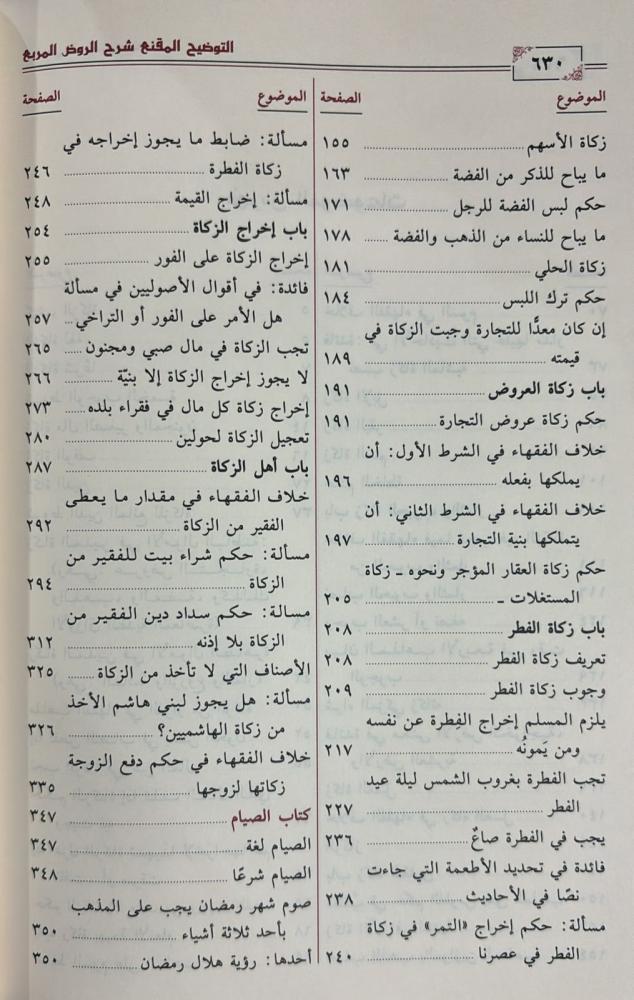 ٦٣٠
التوضيح المقنع شرح الروض المربع
الموضوع الصفحة
زكاة الأسهم ١٥٥
ما يباح للذكر من الفضة ١٦٣
حكم لبس الفضة للرجل ١٧١
ما يباح للنساء من الذهب والفضة ١٧٨
زكاة الحلي ١٨١
حكم ترك اللبس ١٨٤
إن كان معدًّا للتجارة وجبت الزكاة في
قيمته ١٨٩
باب زكاة العروض ١٩١
حكم زكاة عروض التجارة ١٩١
خلاف الفقهاء في الشرط الأول: أن
يملكها بفعله ١٩٦
خلاف الفقهاء في الشرط الثاني: أن
يتملكها بنية التجارة ١٩٧
حكم زكاة العقار المؤجر ونحوه ـ زكاة
المستغلات ـ ٢٠٥
باب زكاة الفطر ٢٠٨
تعريف زكاة الفطر ٢٠٨
وجوب زكاة الفطر ٢٠٩
يلزم المسلم إخراج الفِطرة عن نفسه
ومن يَمونُه ٢١٧
تجب الفطرة بغروب الشمس ليلة عيد
الفطر ٢٢٧
يجب في الفطرة صاعٌ ٢٣٦
فائدة في تحديد الأطعمة التي جاءت
نصًا في الأحاديث ٢٣٨
مسألة: حكم إخراج «التمر» في زكاة
الفطر في عصرنا ٢٤٠
الموضوع الصفحة
مسألة: ضابط ما يجوز إخراجه في
زكاة الفطرة ٢٤٦
مسألة: إخراج القيمة ٢٤٨
باب إخراج الزكاة ٢٥٤
إخراج الزكاة على الفور ٢٥٥
فائدة: في أقوال الأصوليين في مسألة
هل الأمر على الفور أو التراخي ٢٥٧
تجب الزكاة في مال صبي ومجنون ٢٦٥
لا يجوز إخراج الزكاة إلا بنيّة ٢٦٦
إخراج زكاة كل مال في فقراء بلده ٢٧٣
تعجيل الزكاة لحولين ٢٨٠
باب أهل الزكاة ٢٨٧
خلاف الفقهاء في مقدار ما يعطى
الفقير من الزكاة ٢٩٢
مسألة: حكم شراء بيت للفقير من
الزكاة ٢٩٤
مسالة: حكم سداد دين الفقير من
الزكاة بلا إذنه ٣١٢
الأصناف التي لا تأخذ من الزكاة ٣٢٥
مسألة: هل يجوز لبني هاشم الأخذ
من زكاة الهاشميين؟ ٣٢٦
خلاف الفقهاء في حكم دفع الزوجة
زكاتها لزوجها ٣٣٥
كتاب الصيام ٣٤٧
الصيام لغة ٣٤٧
الصيام شرعًا ٣٤٨
صوم شهر رمضان يجب على المذهب
بأحد ثلاثة أشياء ٣٥٠
أحدها: رؤية هلال رمضان ٣٥٠